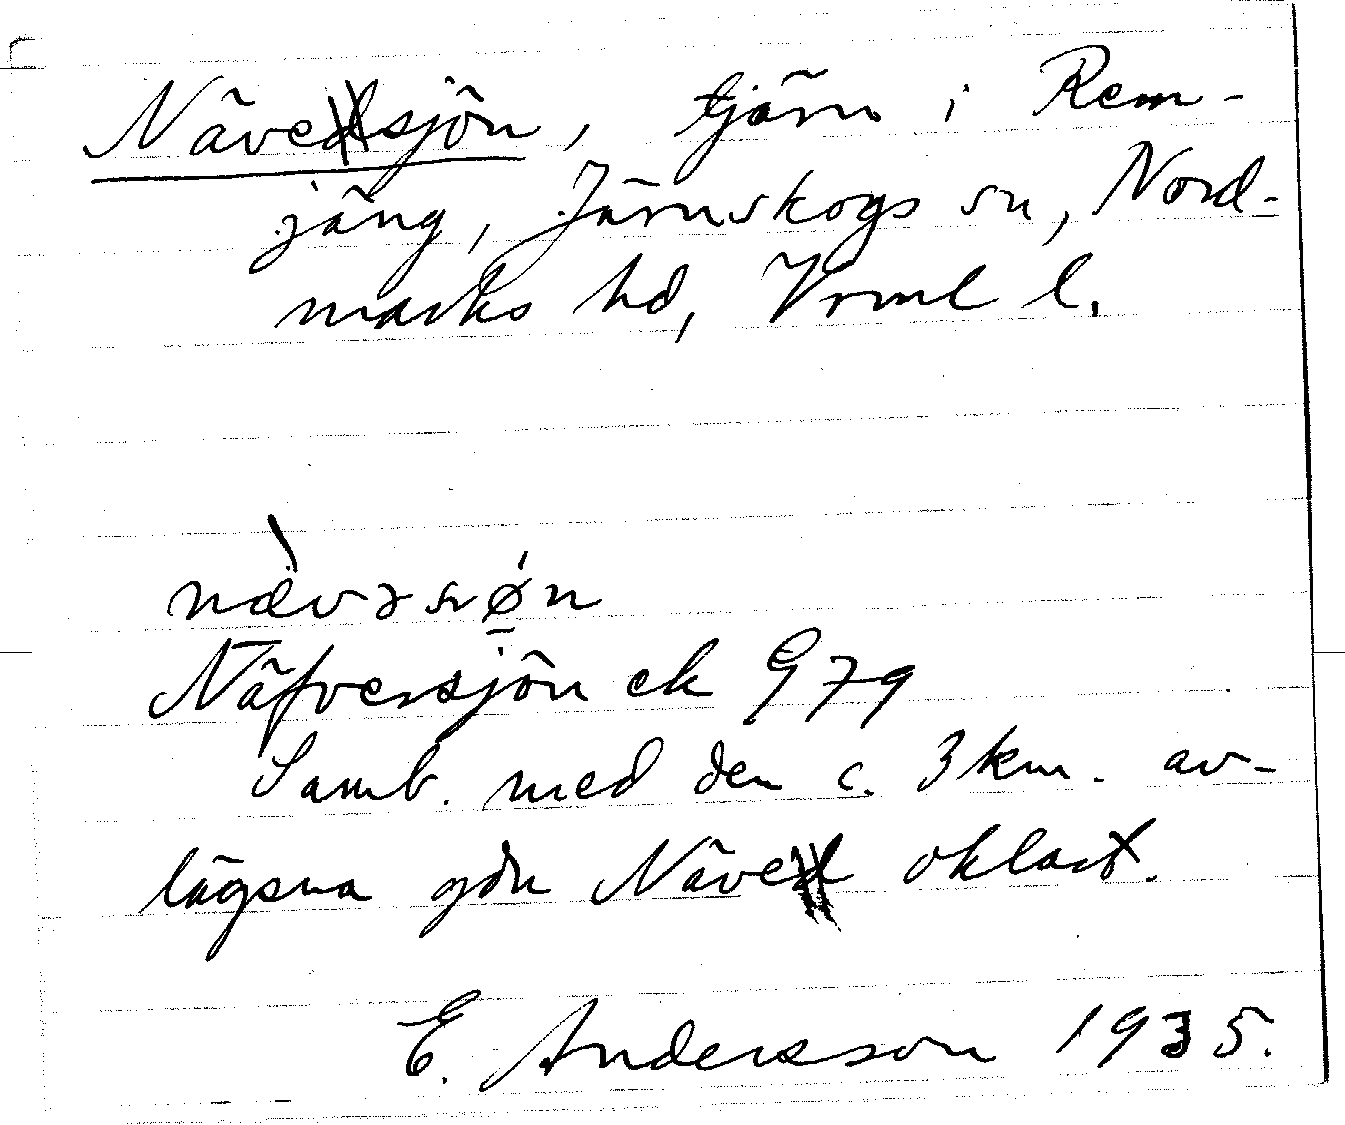 Nävesjön, tjärn i Rem-
jäng, Järnskogs sn, Nord-
marks hd, Vrml l.
nævəsøn
Näfversjön ek 979
Samb. med den c. 3 km. av-
lägsna gdn Näve oklart.
E. Andersson 1935.